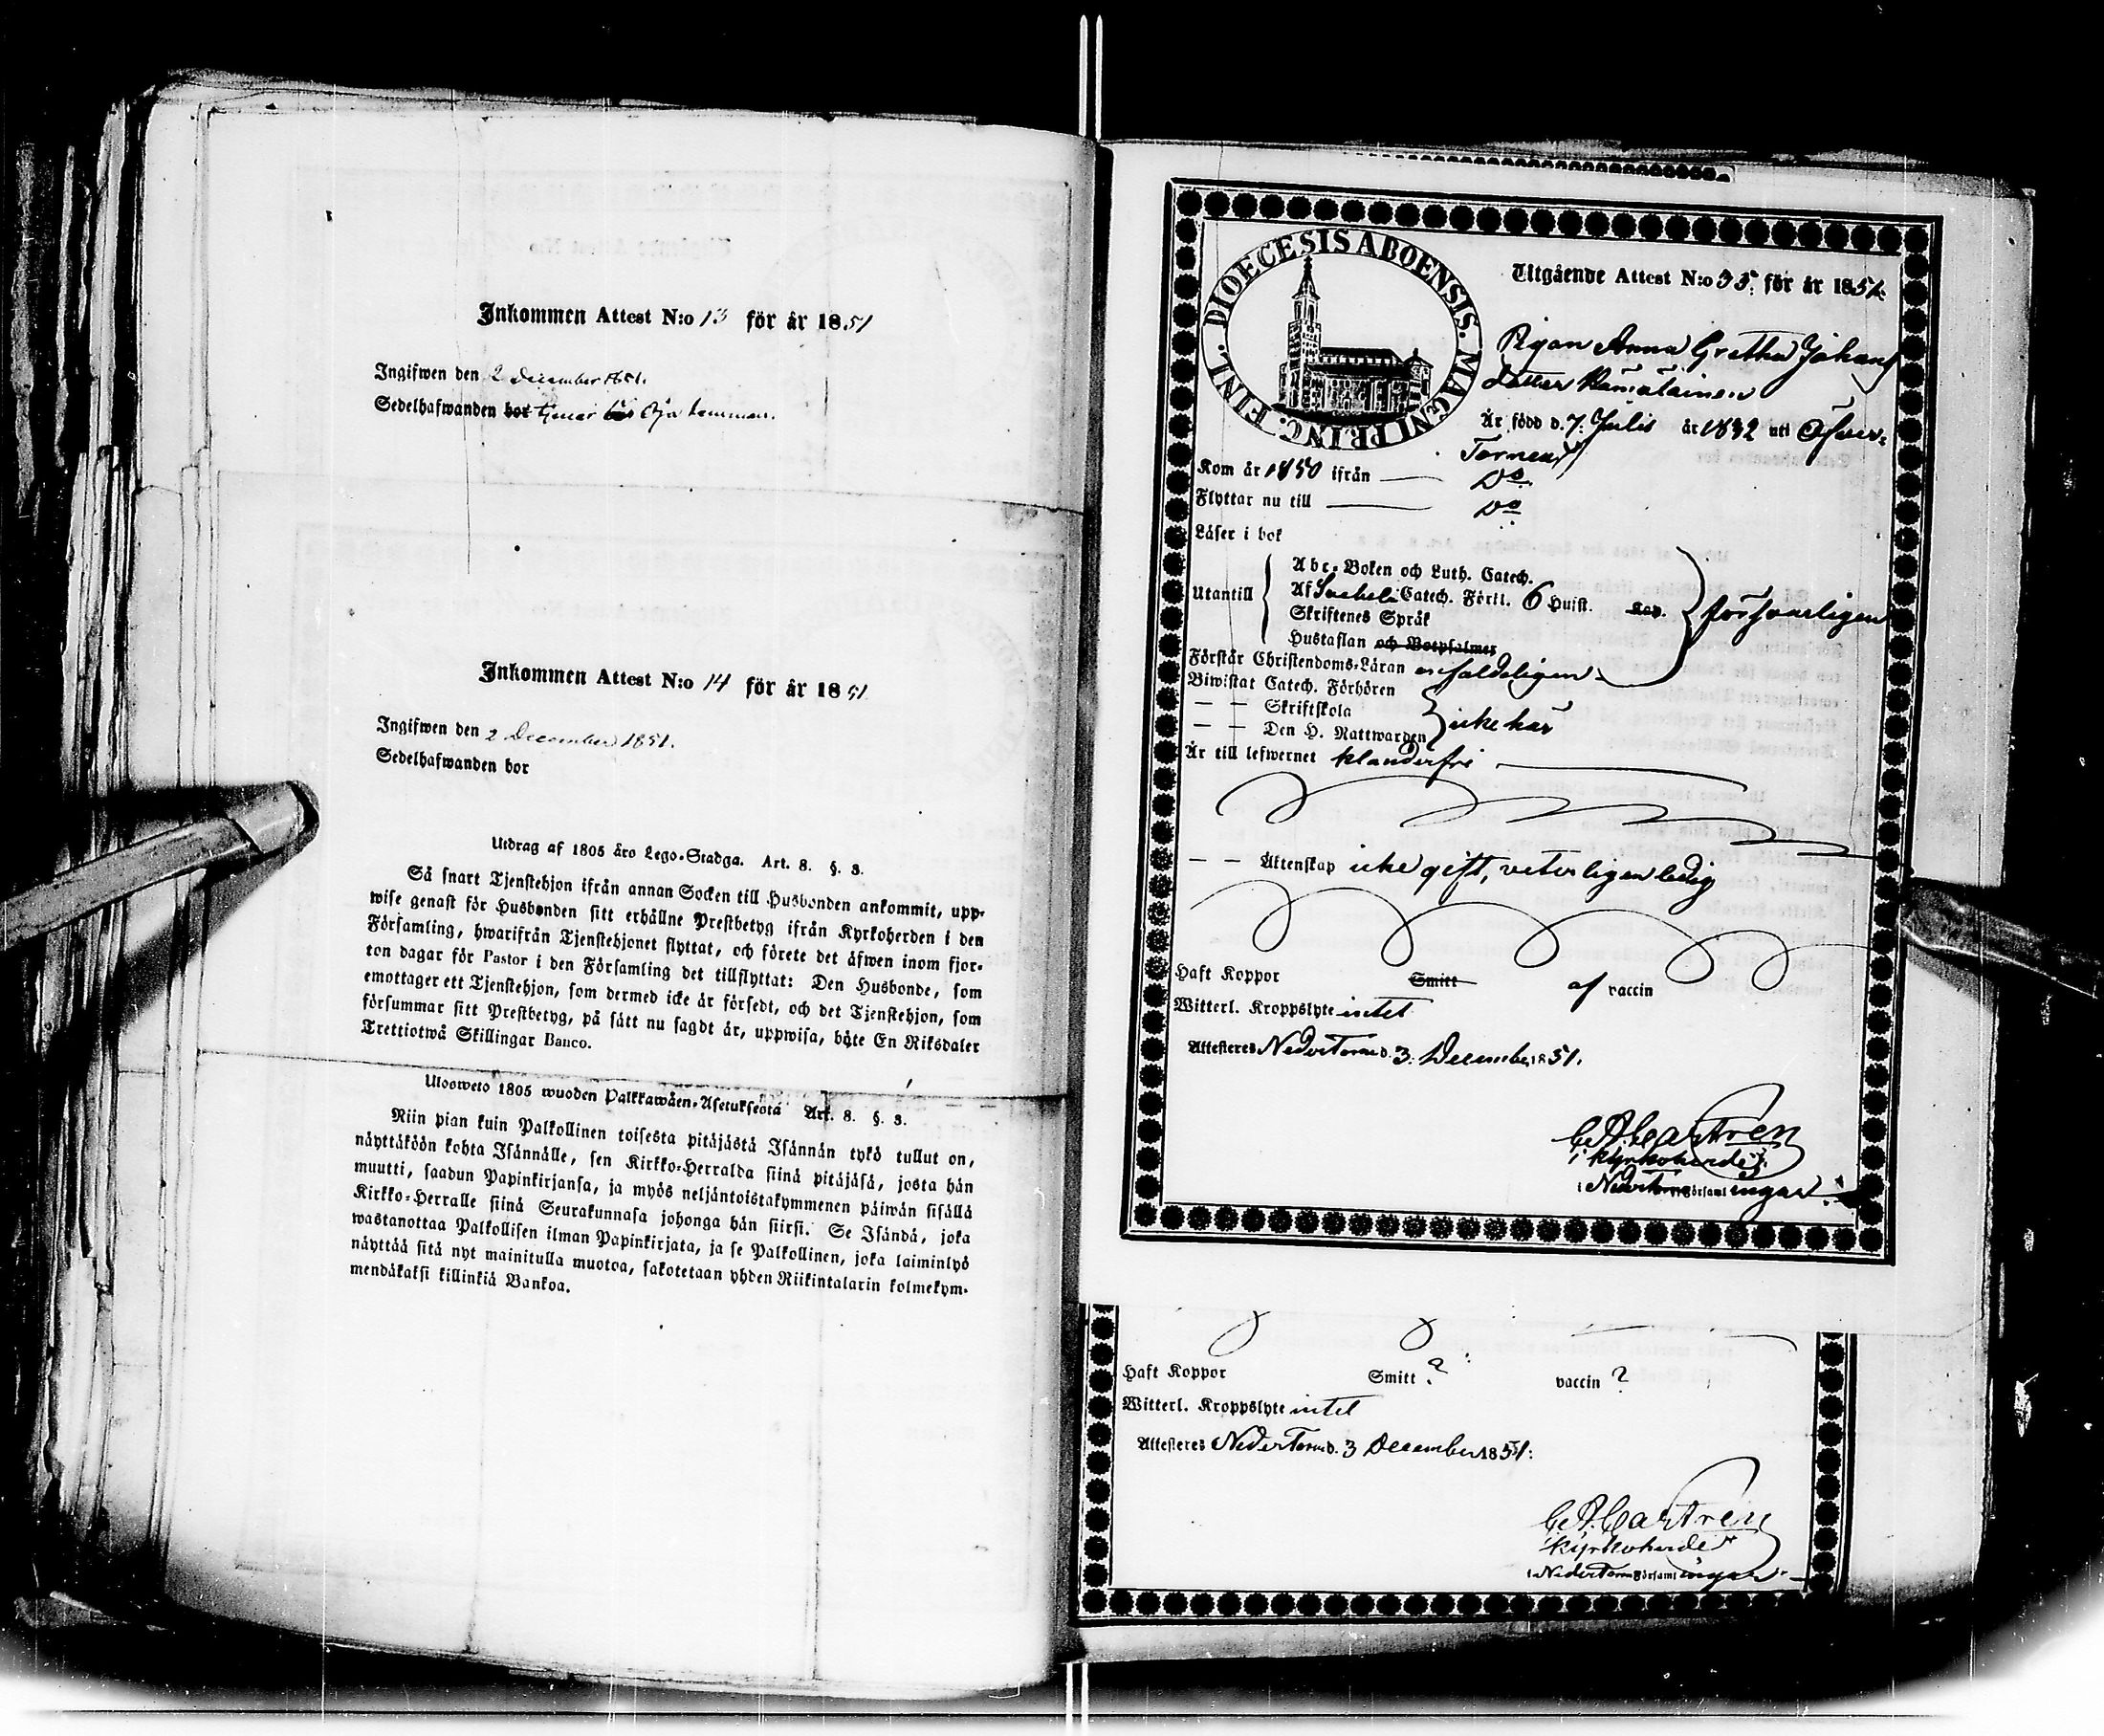 Inkommen Attest N:o 13 för år 1851
Ingifwen den 2 december 1851.
Sedelhafwanden bor tjenar
Inkommen Attest N:o 14 för år 1851
Ingifwen den 2 December 1851.
Sedelhafwanden bor
Utdrag af 1805 års Lego-Stadga. Art. 8. §. 3.
Så snart Tjenstehjon ifrån annan Socken till Husbonden ankommit, upp-
wise genast för Husbonden sitt erhållne Prestbetyg ifrån Kyrkoherden i den
Församling, hwarifrån Tjenstehjonet flyttat, och förete det äfwen inom fjor-
ton dagar för Pastor i den Församling det tillflyttat: Den Husbonde, som
emottager ett Tjenstehjon, som dermed icke är försedt, och det Tjenstehjon, som
försummar sitt Prestbetyg, på sätt nu sagdt är, uppwisa, böte En Riksdaler
Trettiotwå Skillingar Banco.
Ulosweto 1805 wuoden Palkkawäen-Asetuksesta Art. 8. §. 3.
Niin pian kuin Palkollinen toisesta pitäjästä Isännän tykö tullut on,
näyttäköön kohta Isännälle, sen Kirkko-Herralda siinä pitäjäsä, josta hän
muutti, saadun Papinkirjansa, ja myös neljäntoistakymmenen päiwän sisällä
Kirkko-Herralle siinä Seurakunnasa johonga hän siirsi. Se Isändä, joka
wastanottaa Palkollisen ilman Papinkirjata, ja se Palkollinen, joka laiminlyö
näyttää sitä nyt mainitulla muotoa, sakotetaan yhden Riikintalarin kolmekym-
mendäkaksi killinkiä Bankoa.
DIOECESIS ABOENSIS. MAGNI PRINC. FINL.
Utgående Attest N:o 35. för år 1851.
Pigan Anna Gretha Johans
dotter
Är född d. 7. Julii år 1832 uti Öfver-
Torneå
Kom år 1850 ifrån — Do
Flyttar nu till — Do
Läser i bok
Utantill
Abc-Boken och Luth. Catech.
Af Svebelii Catech. Förkl. 6 Huist. Kap.
Skriftenes Språk
Hustaflan och Botpsalmer
försvarligen
Förstår Christendoms-Läran enfaldeligen
Biwistat Catech. Förhören
— — Skriftskola
— — Den H. Nattwarden
icke här
Är till lefwernet klanderfri
— — Äktenskap icke gift, veterligen ledig
Haft Koppor Smitt af vaccin
Witterl. Kroppslyte intet
Attesteras NederTorneå d. 3. December 1851.
C. A. Castren
Kyrkoherde
i NederTorneå Församlingar
Haft Koppor Smitt ? vaccin ?
Witterl. Kroppslyte intet
Attesteras NederTorneå d. 3 December 1851.
C. A. Castren
Kyrkoherde
i NederTorneå Församlingar